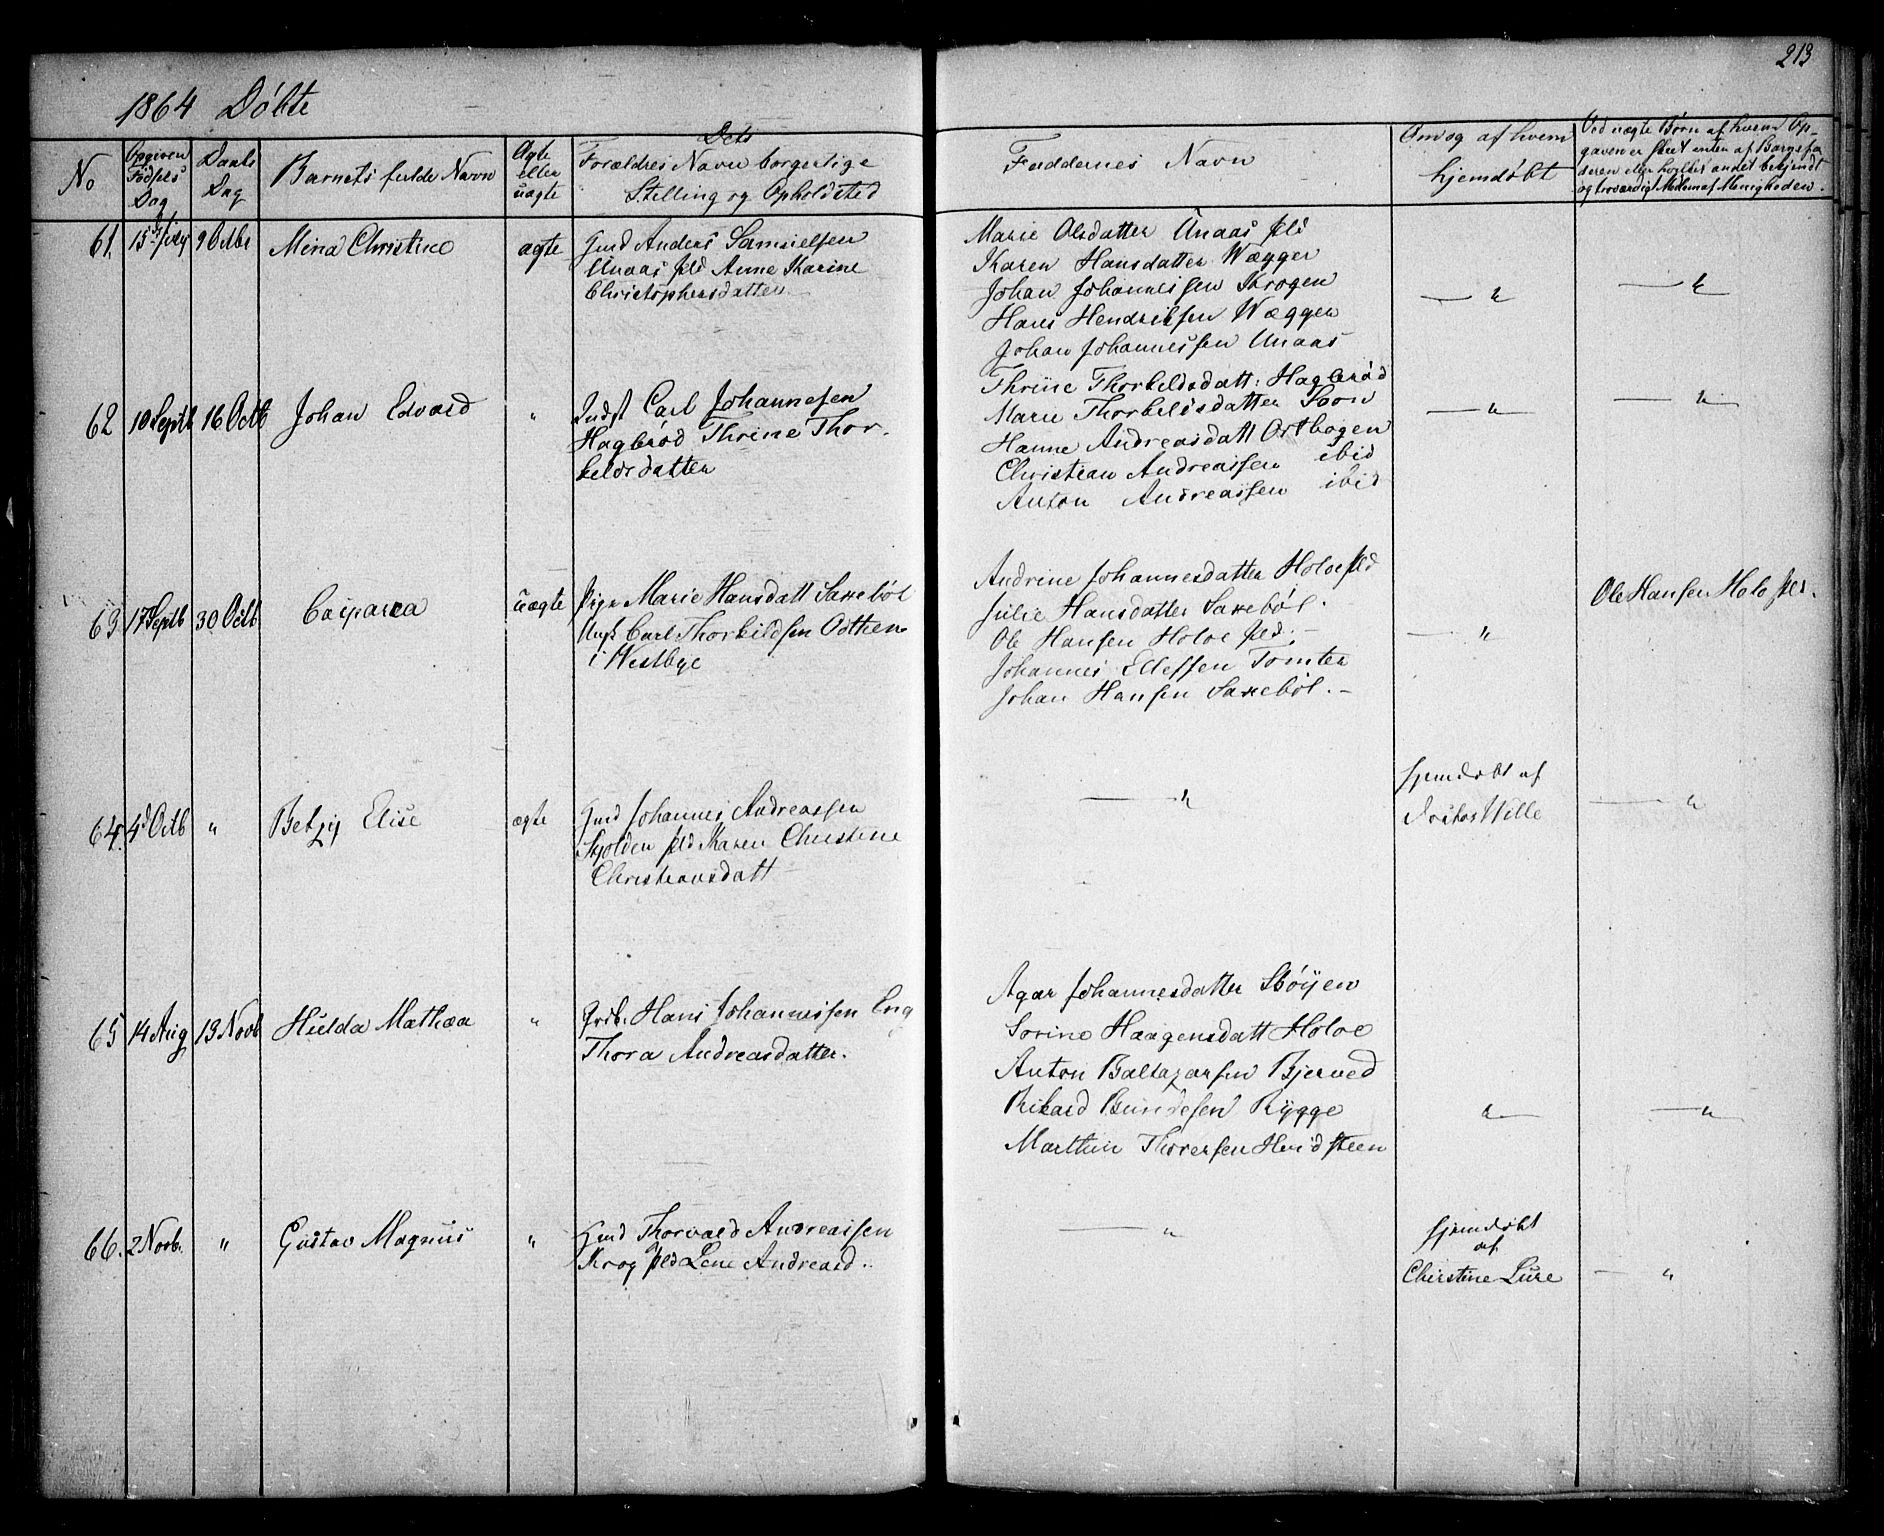 213
1864 Döbte
No
Opgiven Fødsels Dag
Daabs Dag
Barnets fulde Navn
Ægte eller uægte
Dets Forældres Navn borgerlige
Stilling og Opholdsted
Faddernes Navn
Om og af hvem
hjemdøbt
Ved uægte Børn af hvem Op-
gaven er skeet enten af Barnefa
deren eller hvilket andet bekjendt
og troværdig Medlem af Menigheden.
61. 15 9 Octbr Mina Christine ægte Gmd Anders Samuelsen
Unaas pld Anne Karine
Christophersdatter
Marie Olsdatter Unaas pld
Karen Hansdatter Wægger
Johan Johannessen Krogen
Hans Hendriksen Wæggen
Johan Johannessen Unaas
62 10 Septb 16 Octb Johan Edvard " Indst Carl Johannesen
Hagbrød Thrine Thor-
keldsdatter
Thrine Thorkeldsdatt: Hagbrød
Marie Thorkeldsdatter Soon
Hanne Andreasdatt Ortbogen
Christian Andreassen ibid
Anton Andreassen ibid
63 17 Septb 30 Octb. Casparea uægte Pige Marie Hansdatt Saxebøl
Ungk Carl Thorkildsen Odthen
i Westbye
Andrine Johannesdatter Holoe pld
Julie Hansdatter Saxebøl.
Ole Hansen Holoe pld. -
Johannes Ellefsen Tomter
Johan Hansen Saxebøl. -
"
Ole Hansen Holo
64. 4d Octb " Betzy Elise ægte Gmd Johannes Andreassen
Skjolden pld Karen Christine
Christiansdatt
"
hjemdøbt af
Doktor Wille
"
65 14 Aug 13 Novb Hulda Mathea " Grdb. Hans Johannessen Eng
Thora Andreasdatter.
Agar Johannesdatter Støyen
Sorine Haagensdatt Holoe
Anton Baltazarsen Bjerved
Rikard Bundesen Rygge
Marthin Thoresen Hvidsteen
66. 2 Novb. " Gustav Magnus " Gmd Thorvald Andreassen
Krog pld Lene Andreasd.
"
hjemdøbt
af
Christine Lure
"